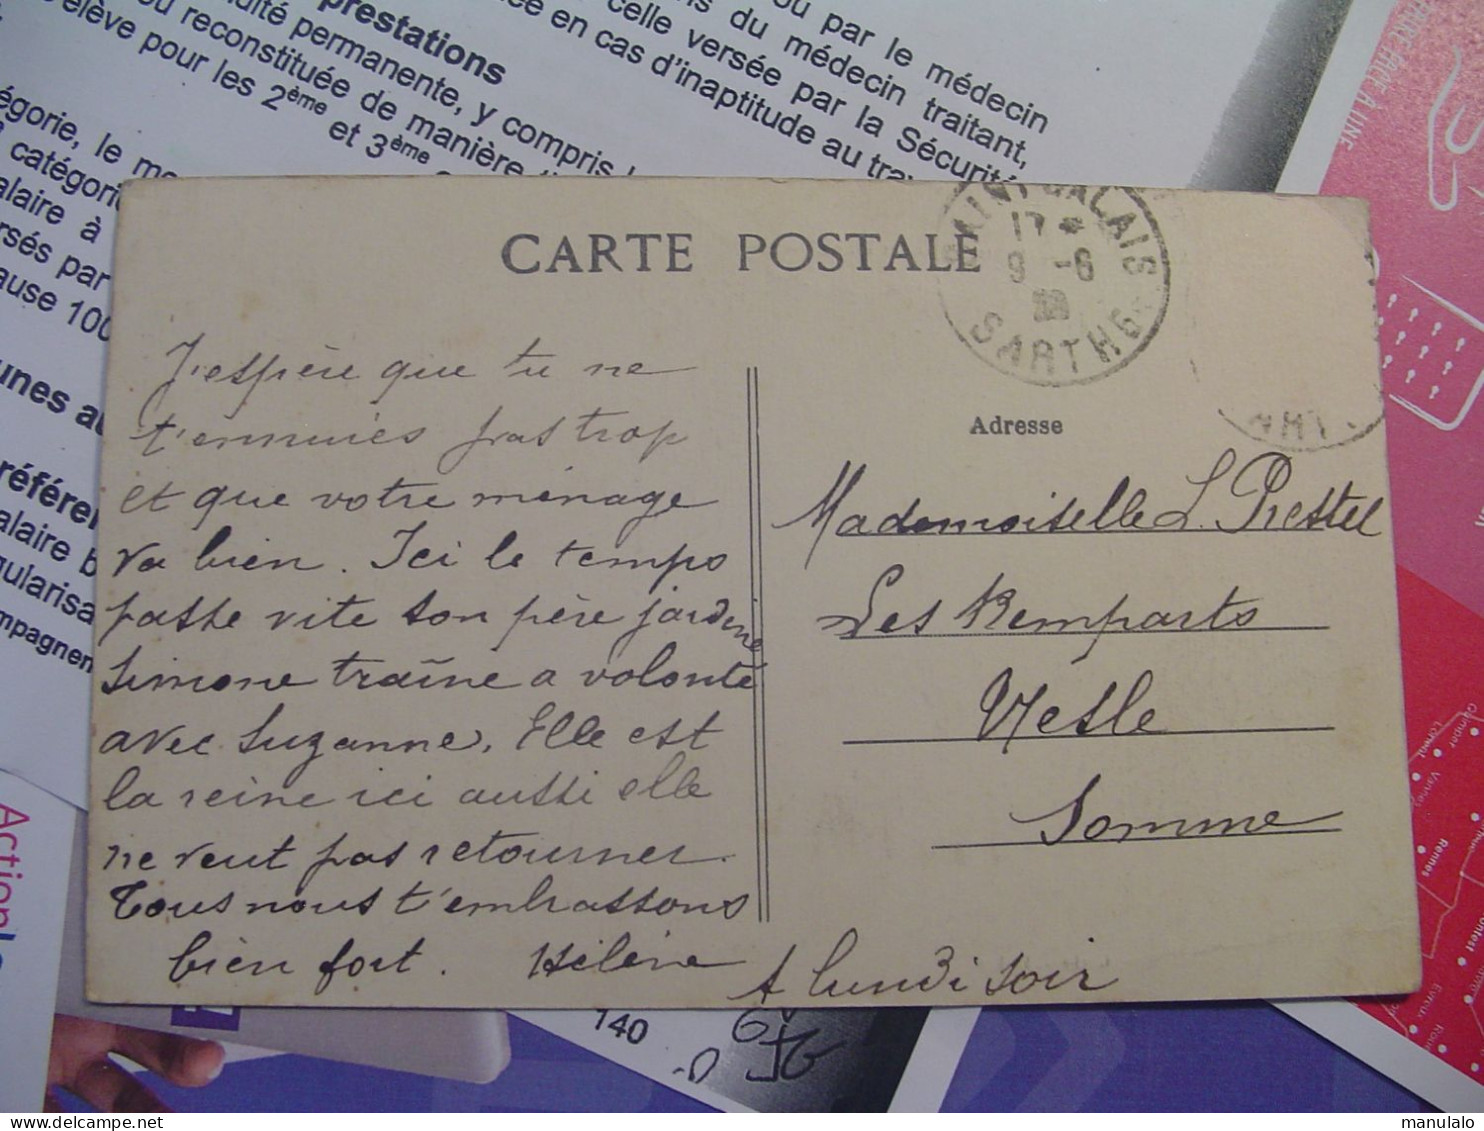 prestations
dité permanente, y compris
ou reconstituée de manière
élève pour les 2ème et 3ème
ou par le médecin
du médecin traitant,
celle versée par la Sécurité
en cas d'inaptitude au trav
égorie, le
catégorie
alaire à
rsés par
ause 100
unes
référen
alaire b
gularisa
mpagnen
CARTE POSTALE
SAINT CALAIS
17 *
9 -6
SARTHE
Adresse
J'espère que tu ne
t'ennuies pas trop
et que votre ménage
va bien. Ici le temps
passe vite ton père jardine
Simone traîne a volonté
avec Suzanne. Elle est
la reine ici aussi elle
ne veut pas retourner.
Tous nous t'embrassons
bien fort. Hélène
A lundi soir
Mademoiselle L. Prestel
Les Remparts
Nesle
Somme
140
Action
PARE À LINE
Quimper
Lorient
Vannes
Rennes
Evreux
manulalo